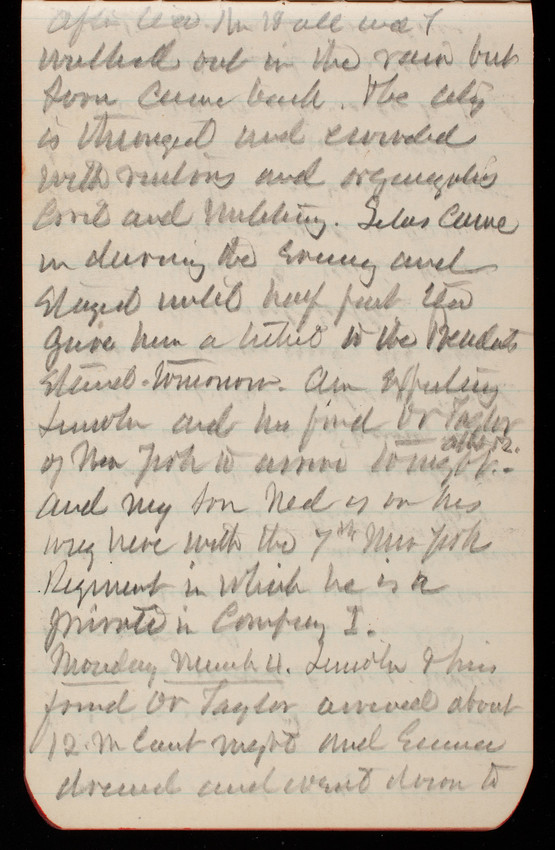 after tea. Mr Hall and I
walked out in the rain but
soon came back. The city
is thronged and crowded
with visitors and organizations
Civil and Military. Silas came
in during the Evening and
Stayed until half past ten
gave him a ticket to the Presidents
Stand tomorrow. Am expecting
Lincoln and his friend Dr Taylor
of New York to arrive tonight. after 12.
and my Son Ned is on his
way here with the 7th New York
Regiment in which he is a
private in Company I.
Monday March 4. Lincoln & his
friend Dr Taylor arrived about
12. M last night and Emma
dressed and went down to